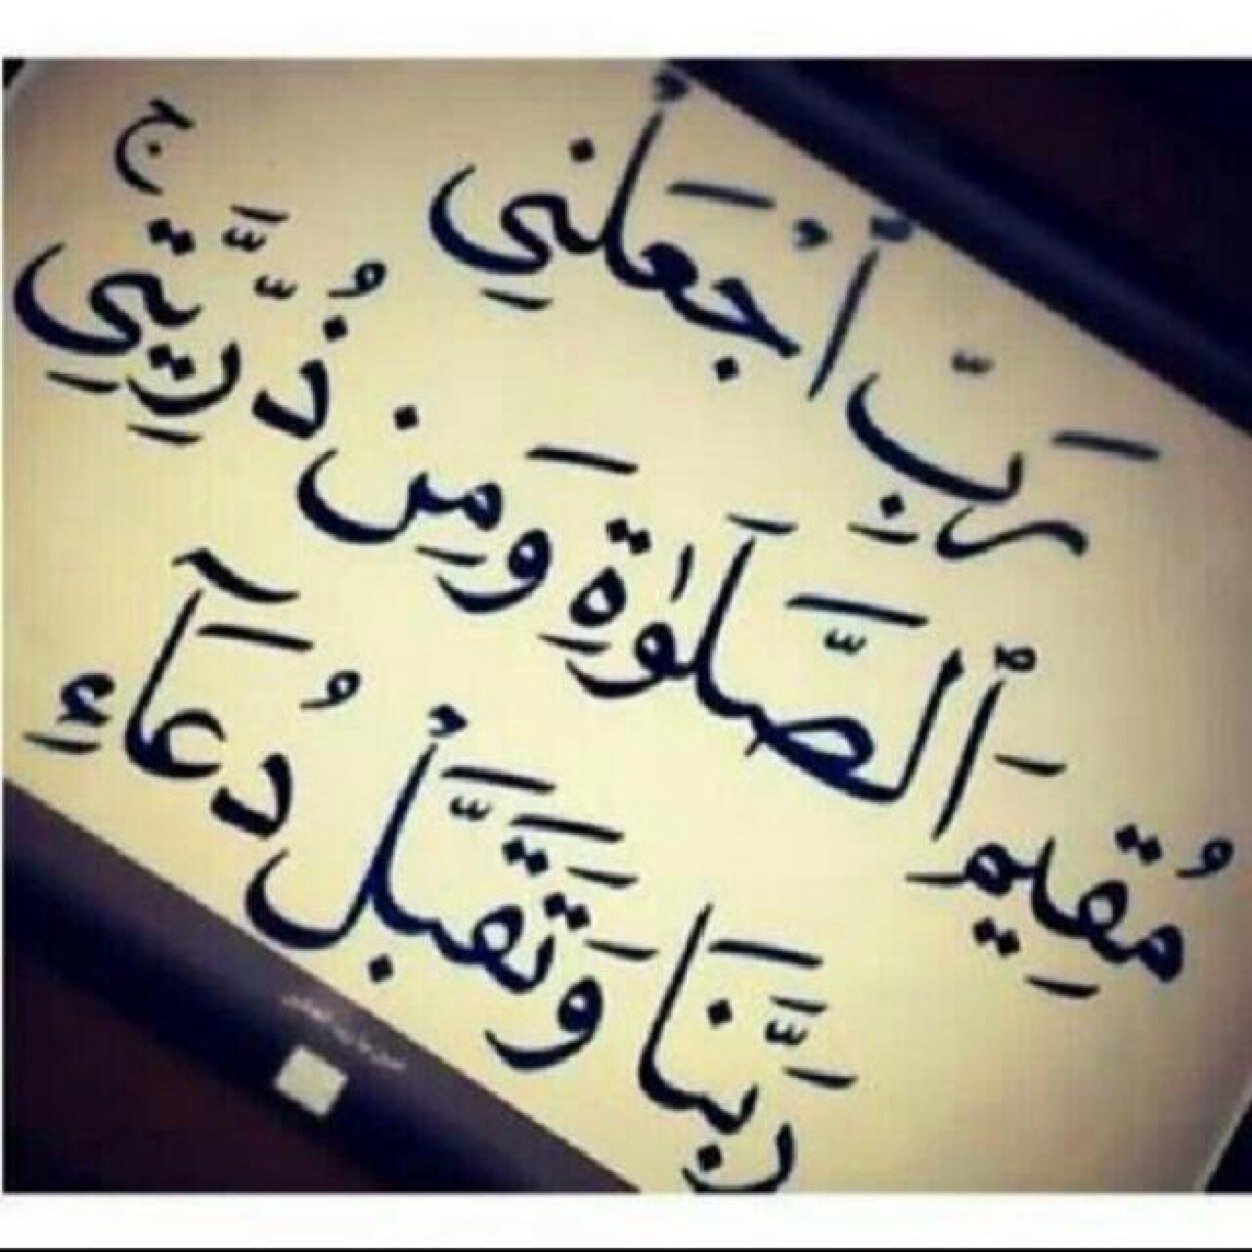 رَبِّ ٱجۡعَلۡنِي
مُقِيمَ ٱلصَّلَوٰةِ وَمِن ذُرِّيَّتِيۚ
رَبَّنَا وَتَقَبَّلۡ دُعَآءِ